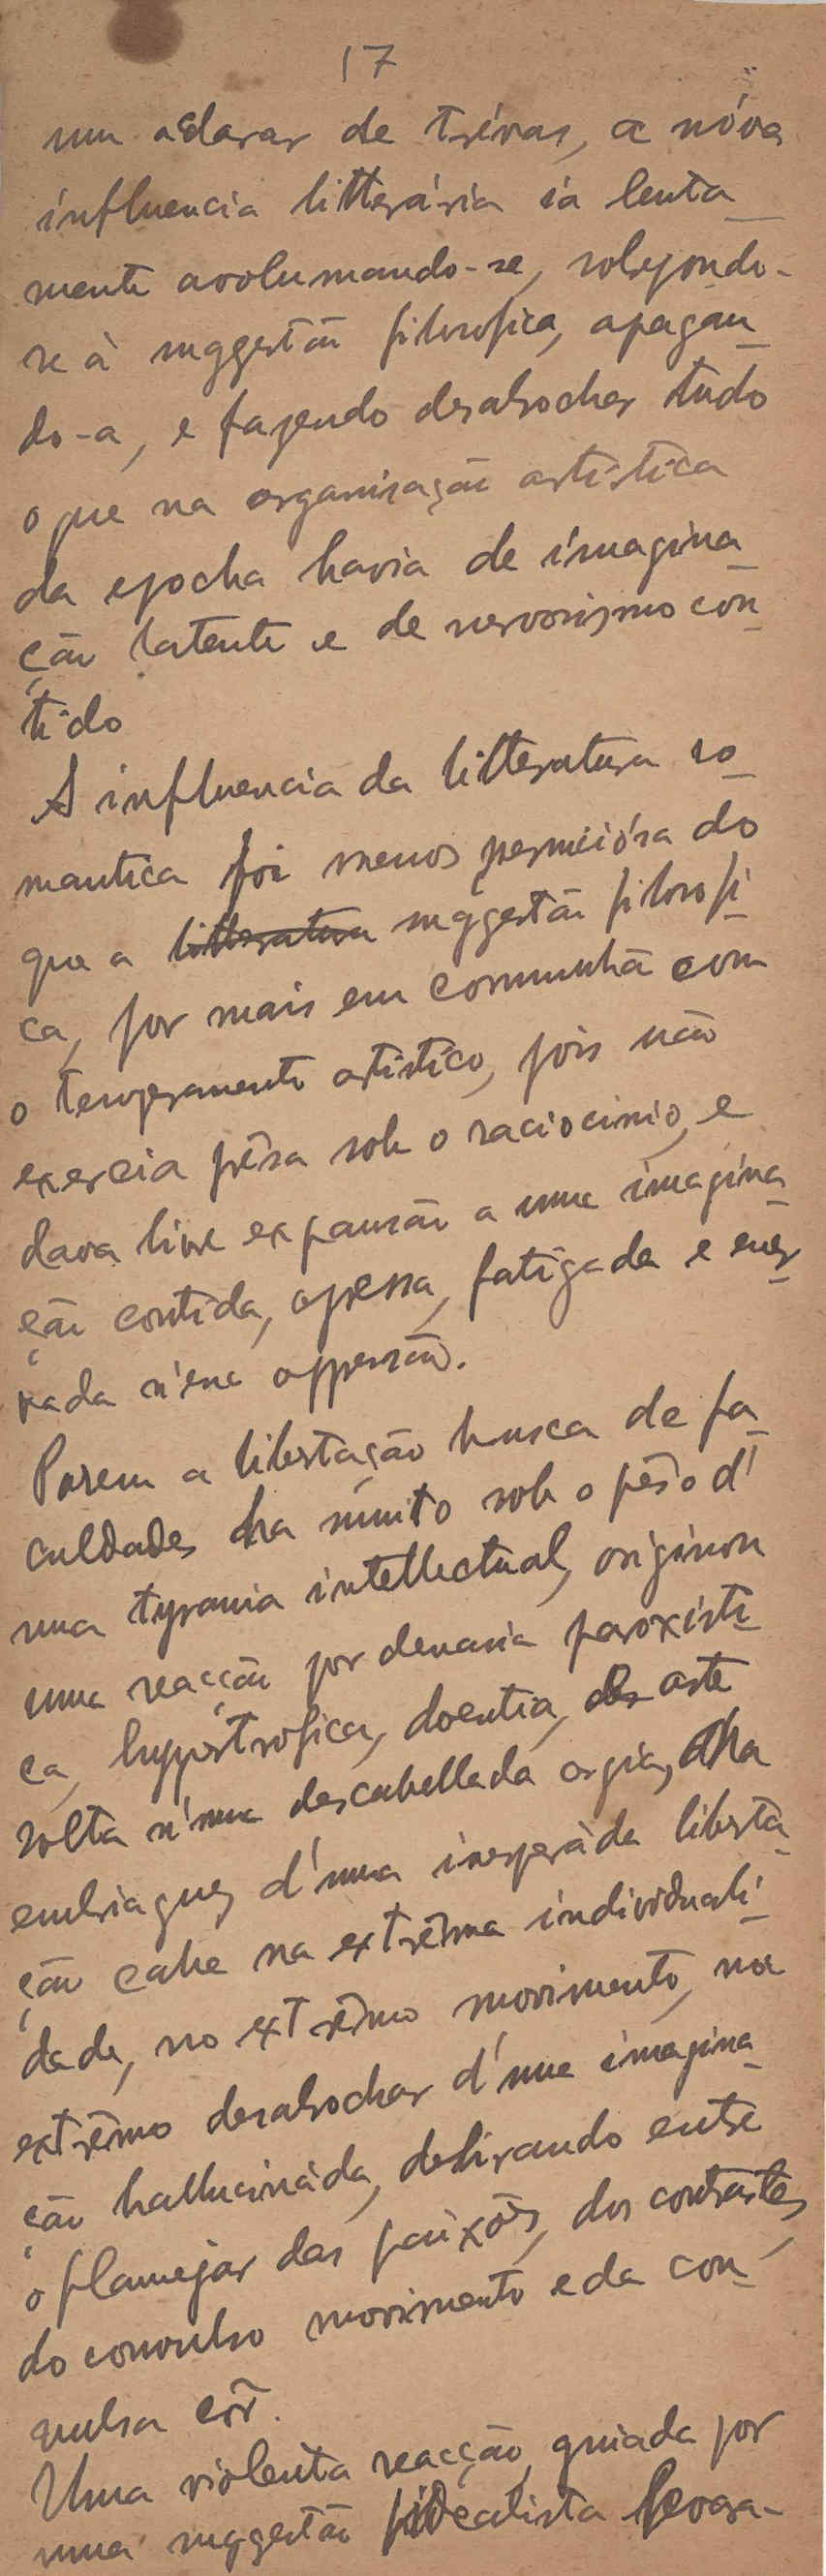 17
um aclarar de trévas, a nóva
influencia litterária ia lenta
mente avolumando-se, sobrepondo-
se à suggestão filosofica, apagan
do-a, e fazendo desabrochar tudo
o que na organisação artistica
da epocha havia de imagina
ção latente e de nervosismo con
tido
A influencia da litteratura ro
mantica foi menos perniciósa do
que a suggestão filosofi
ca, por mais em communhã com
o temperamento artistico, pois não
exercia pêsa sob o raciocinio, e
dava livre expansão a uma imagina
ção contida, opressa, fatigada e ener
vada n'uma oppressão.
Porem a libertação brusca de fa
culdades ha muito sob o pêso d'
uma tyrania intellectual, originou
uma reacção por demasia paroxisti
ca, hypertrofica, doentia, a arte
solta n'uma descabellada orgia, na
embriaguez d'uma inesperàda liberta
ção cahe na extrêma individuali
dade, no extrêmo movimento, no
extrêmo desabrochar d'uma imagina
ção hallucinàda, delirando entre
o flamejar das paixões, dos contrastes,
do convulso movimento e da con
vulsa côr.
Uma violenta reacção, guiada por
uma suggestão idealista levára-